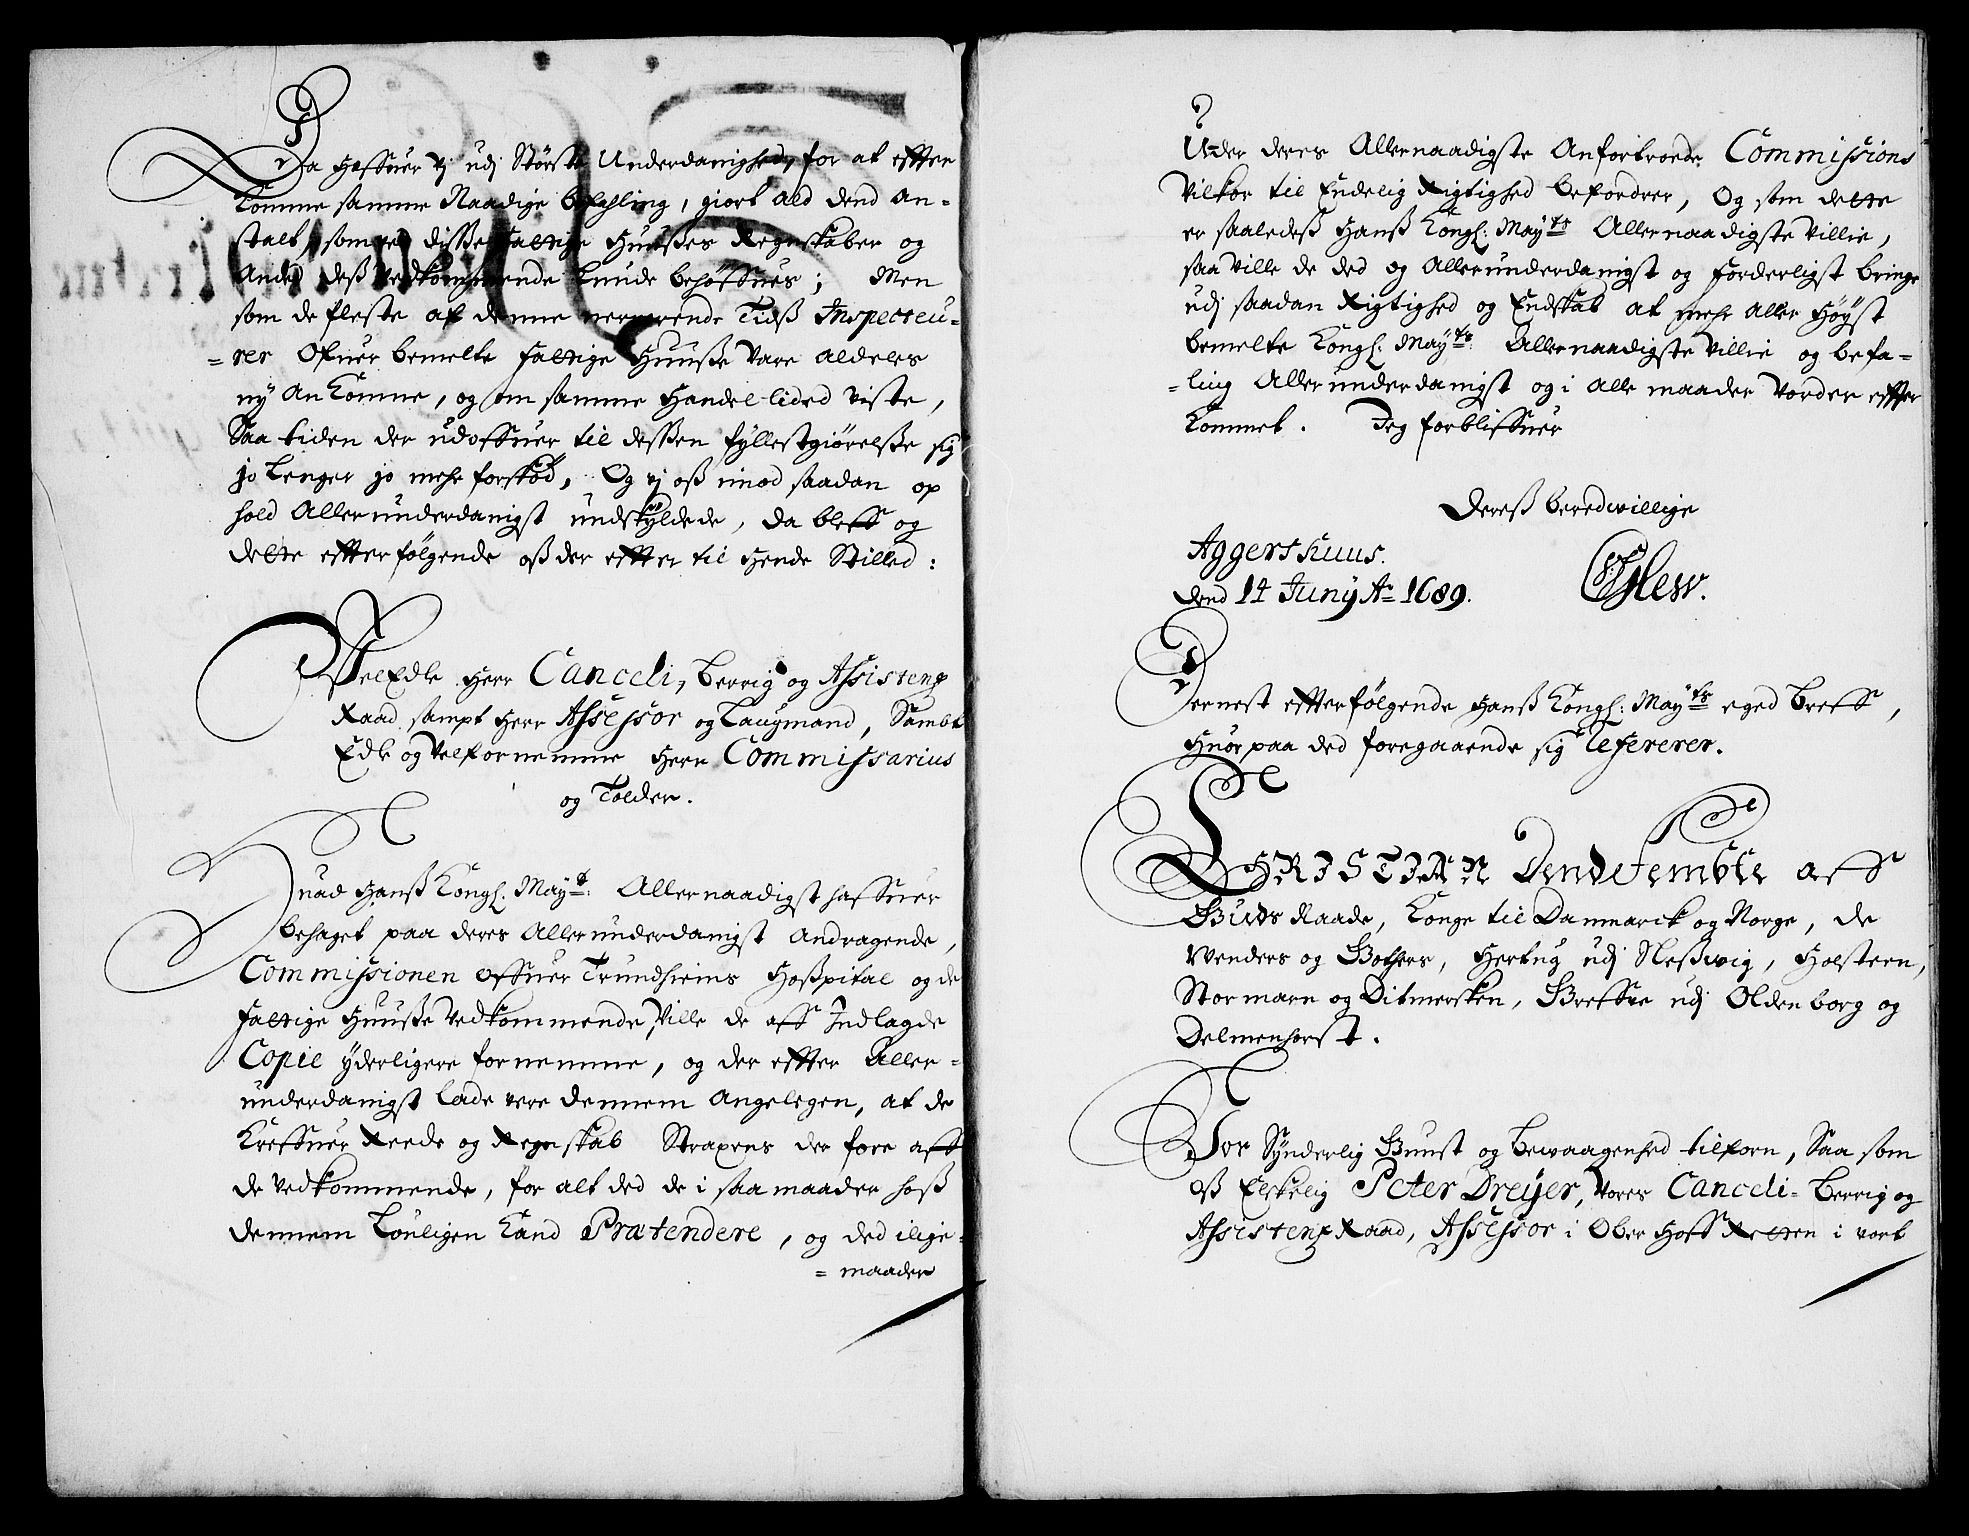 Da Hafuer vj udj Største Underdanighed, for at effter
komme samme Naadige befahling, giort ald dend An-
stalt, som ved disse Fattige Huusses Regnskaber og
Andet deß vedkommende kunde behøffues; Men
som de fleste af denne nerverende Tidß Inspecteu-
=rer Ofuer bemelte Fattige Huusse vare aldeles
ny Ankomne, og om samme Handel lided viste,
Saa tiden der udofuer til dessen fyllestgiørelsse sig
jo Lenger jo mehr forskød, Og vj oß imod saadan op
hold Allerunderdanigst undskyldede, da bleff og
dette effterfølgende oß der effter til Hende Stilled:
VelEdle Herr Canceli, Berrig og Assistenz
Raad, sampt Herr Assessor og Laugmand, Sambt
Edle og Velfornemme Herr Commissarius
og Tolder.
Huad Hanß Kongl: Mayts: Allernaadigst haffuer
behaget paa deres Allerunderdanigst Andragende,
Commissionen offuer Trundheims Hoßpital og de
Fattige Huusse Vedkommende, Ville de aff Indlagde
Copie yderligere fornemme, og der effter Aller-
underdanigst lade vere dennem Angelegen, at de
Kreffuer Reede og Regnskab Straxens der fore aff
de vedkommende, for alt ded de i saa maader hoß
dennem Louligen Kand Prætendere, og ded ilige-
= maader
Uder deres Allernaadigste Anfortroede Commissions
Vilkor til Endelig Rigtighed befordrer, Og som dette
er saaledeß Hanß Kongl: Mayts Allernaadigste Villie,
saa Ville de ded og Allerunderdanigst og forderligst bringe
udj saadan Rigtighed og Endskab at mehr Aller Høyst
bemelte Kongl: Mayts: Allernaadigste Villie og befa-
=ling Allerunderdanigst og i Alle maader Vorder effter
Kommet. Jeg forbliffuer
Dereß beredwillige
Aggershuus.
dend 14 Junij Ao 1689.
Dernest effterfølgende Hanß Kongl: Mayts eged Breff,
Huor paa ded foregaaende sig refererer.
CHRISTIAN Dend Fembte aff
Guds Naade, Konge til Danmarck og Norge, de
Wenders og Gothers, Hertug udj Sleßwig, Holsteen,
Stormarn og Ditmersken, Greffve udj Oldenborg og
Delmenhorst.
Vor Synderlig Gunst og Bewaagenhed tilforn, Saa som
oß Elskelig Peter Dreyer, Vores Canceli- Berrig og
Assistenz Raad, Assessor i Ober Hoff Retten i vort